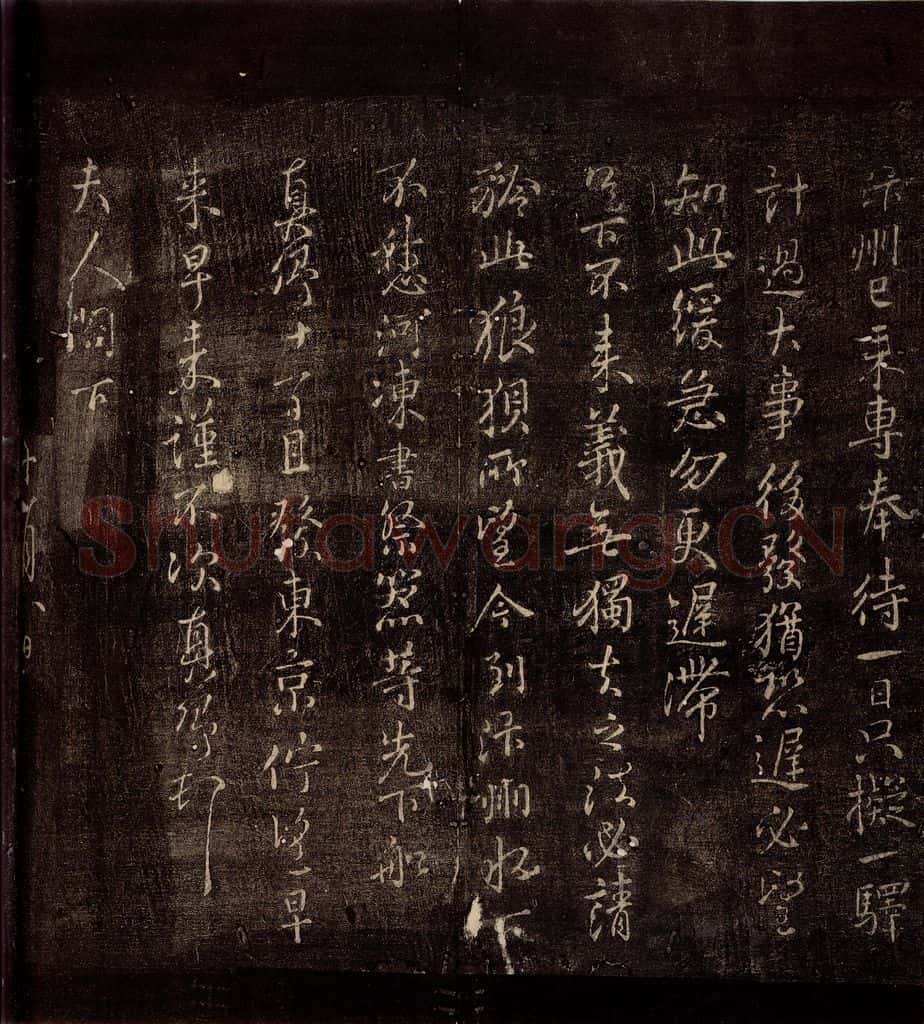 汴州已來專奉待一日只擬一驛
計過大事後發猶恐遲必望
知此緩急勿更遲滯
足下不来義無獨去之法必請
此狼狽所望今到汴州水下
不愁河凍書祭器等先下船
真卿十一日且發東京佇望早
来早来謹不次真卿
夫人閤下
十一月八日
Shufawang.CN